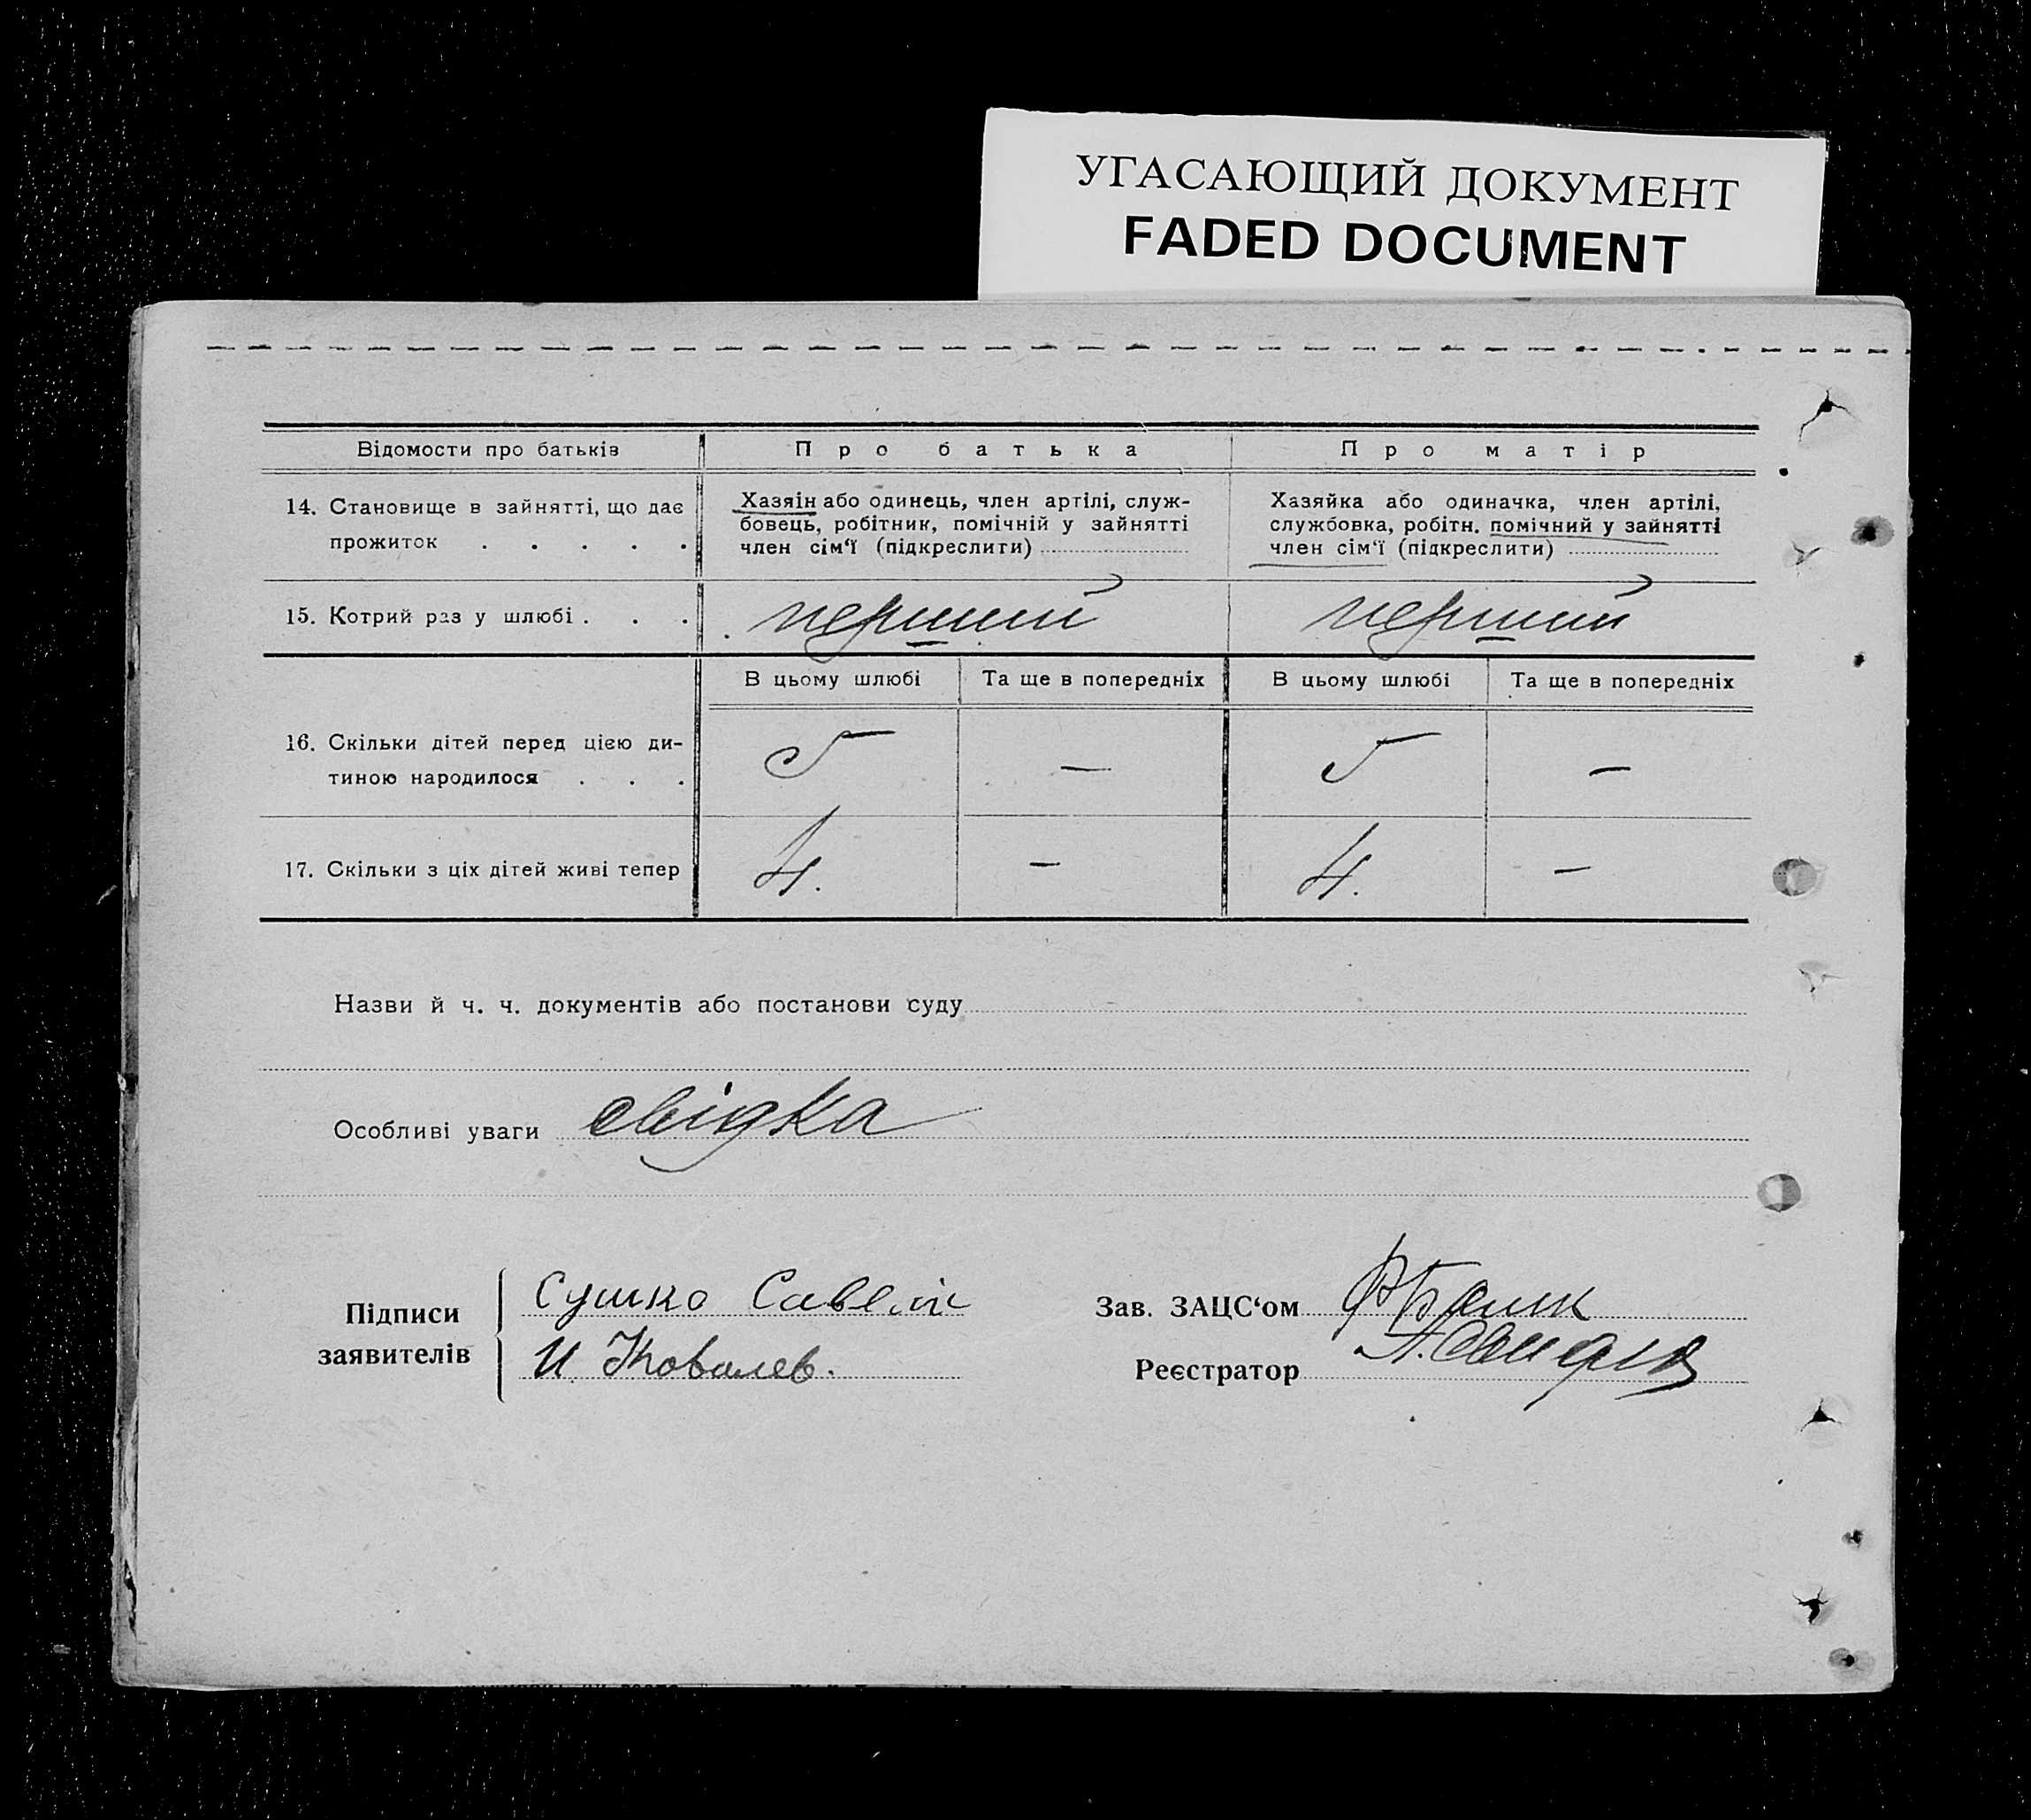 УГАСАЮЩИЙ ДОКУМЕНТ
FADED DOCUMENT
Відомости про батьків Про батька Про матір
14. Становище в зайнятті, що дає прожиток . . . . .
Хазяін або одинець, член артілі, служ-
бовець, робітник, помічній у зайнятті
член сім‘ї (підкреслити)
Хазяйка або одиначка, член артілі,
службовка, робітн. помічний у зайнятті
член сім‘ї (підкреслити)
15. Котрий раз у шлюбі . . . перший перший
В цьому шлюбі Та ще в попередніх В цьому шлюбі Та ще в попередніх
16. Скільки дітей перед цією ди-
тиною народилося . . . 5 — 5 —
17. Скільки з ціх дітей живі тепер 4. — 4. —
Назви й ч. ч. документів або постанови суду
Особливі уваги свідка
Підписи заявителів
Сушко Савелій
И. Ковалев.
Зав. ЗАЦС‘ом
Реєстратор